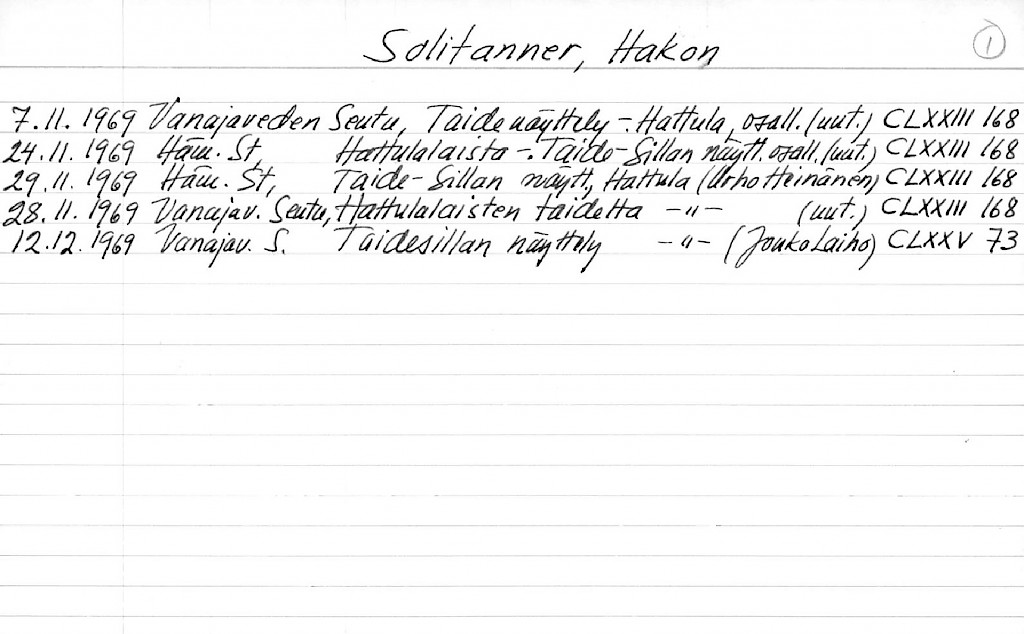 Solitanner, Hakon 1
7.11. 1969 Vanajaveden Seutu, Taidenäyttely -. Hattula, osall. (uut.) CLXXIII 168
24.11. 1969 Häm. St, Hattulalaista -. Taide-Sillan näytt. osall. (uut.) CLXXIII 168
29.11. 1969 Häm. St, Taide-Sillan näytt., Hattula (Urho Heinänen) CLXXIII 168
28.11. 1969 Vanajav. Seutu, Hattulalaisten taidetta -"- (uut.) CLXXIII 168
12.12. 1969 Vanajav. S. Taidesillan näyttely -"- (Jouko Laiho) CLXXV 73